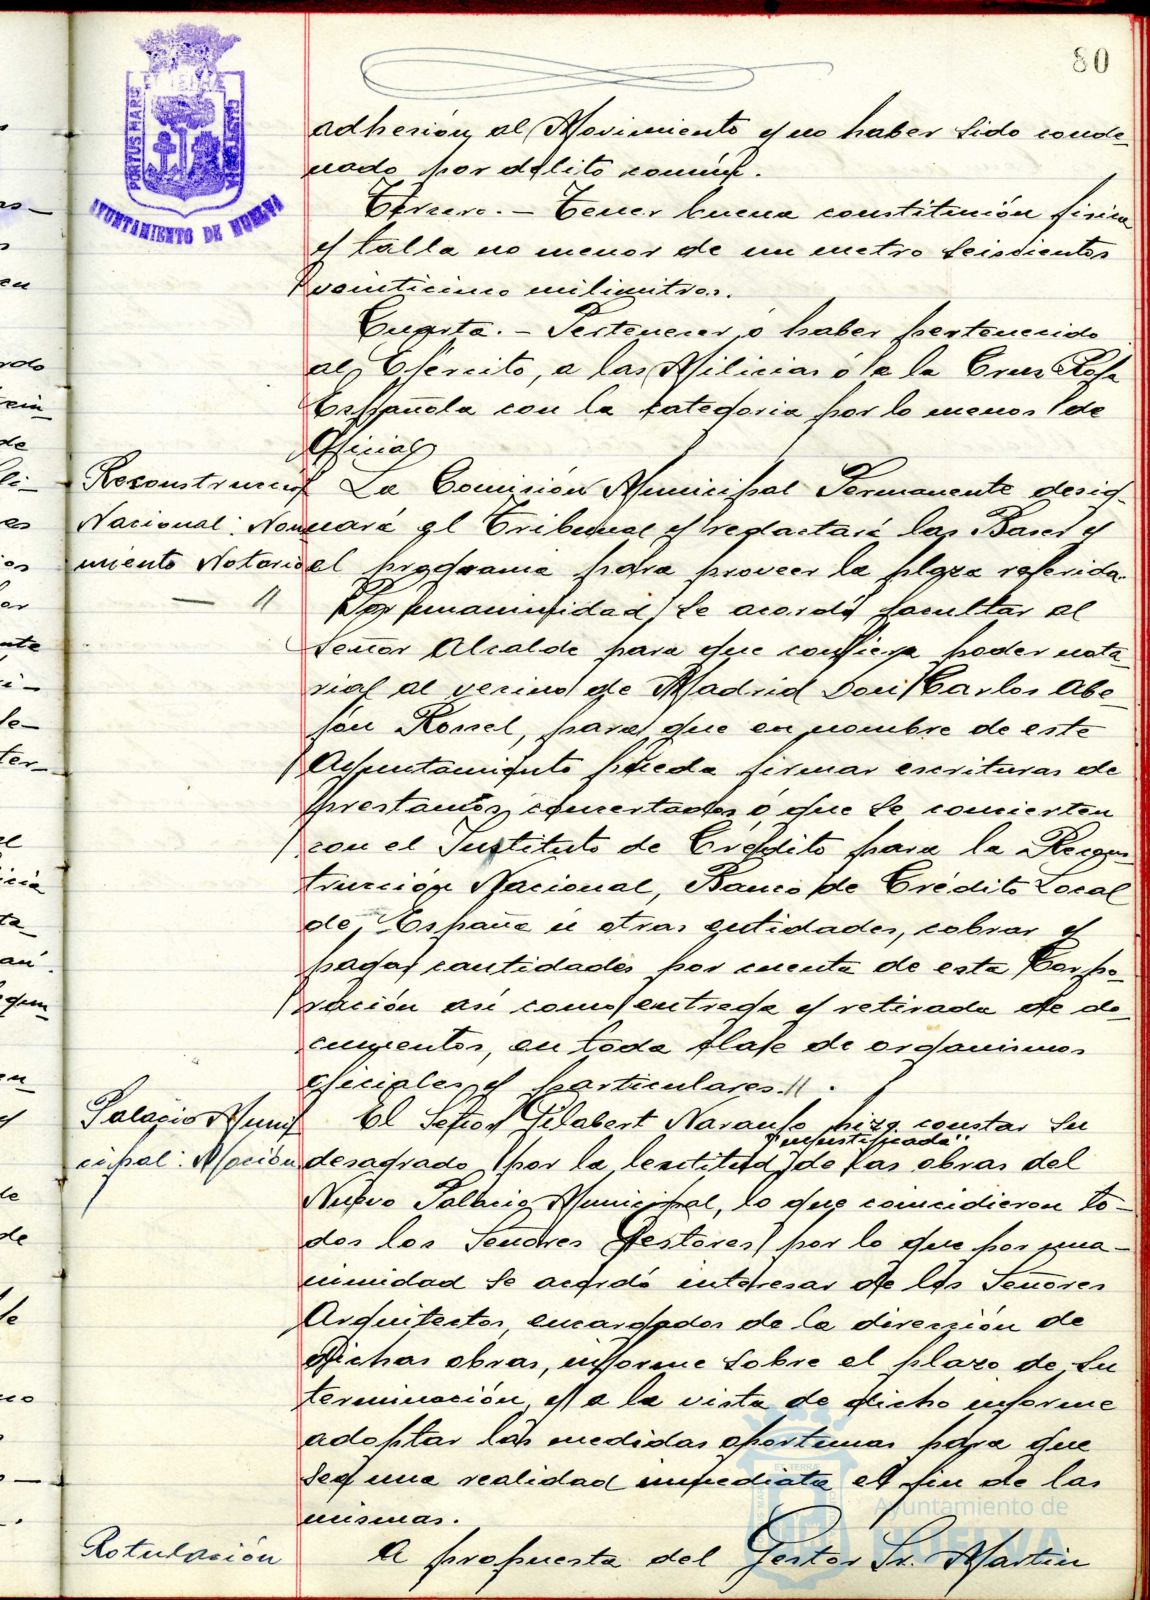 80
PORTUS MARIS ET TERRÆ CUSTODIA
AYUNTAMIENTO DE HUELVA
adhesión al Movimiento y no haber sido conde-
nado por delito común.
Tercero.- Tener buena constitución física
y talla no menor de un metro seiscientos
veinticinco milimitros.
Cuarta.- Pertenecer ó haber pertenecido
al Ejército, a las Milicias ó a la Cruz Roja
Española con la categoria por lo menos de
Oficial
Reconstrucción
Nacional: Nom
miento Notario
— "
La Comisión Municipal Permanente desig-
nará el Tribunal y redactará las Bases y
el programa para proveer la plaza referida.
Por unanimidad se acordó facultar al
Señor Alcalde para que confiera poder nota-
rial al vecino de Madrid Don Carlos Abe-
jón Rossel, para que en nombre de este
Ayuntamiento pueda firmar escrituras de
prestamos concertados ó que se concierten
con el Instituto de Crédito para la Recons-
trucción Nacional, Banco de Crédito Local
de España ú otras entidades, cobrar y
pagar cantidades por cuenta de esta Corpo-
ración así como entrega y retirada de do-
cumentos, en toda clase de organismos
oficiales y particulares.
Palacio Muni
cipal: Moción
El Señor Gilabert Naranjo hizo constar su
"injustificada"
desagrado por la lentitud de las obras del
Nuevo Palacio Municipal, lo que coincidieron to-
dos los Señores Gestores, por lo que por una-
nimidad se acordó interesar de los Señores
Arquitectos, encargados de la dirección de
dichas obras, informe sobre el plazo de su
terminación, y a la vista de dicho informe
adoptar las medidas oportunas para que
sea una realidad inmediata el fin de las
mismas.
Rotulación
A propuesta del Gestor Sr. Martin
Ayuntamiento de
HUELVA